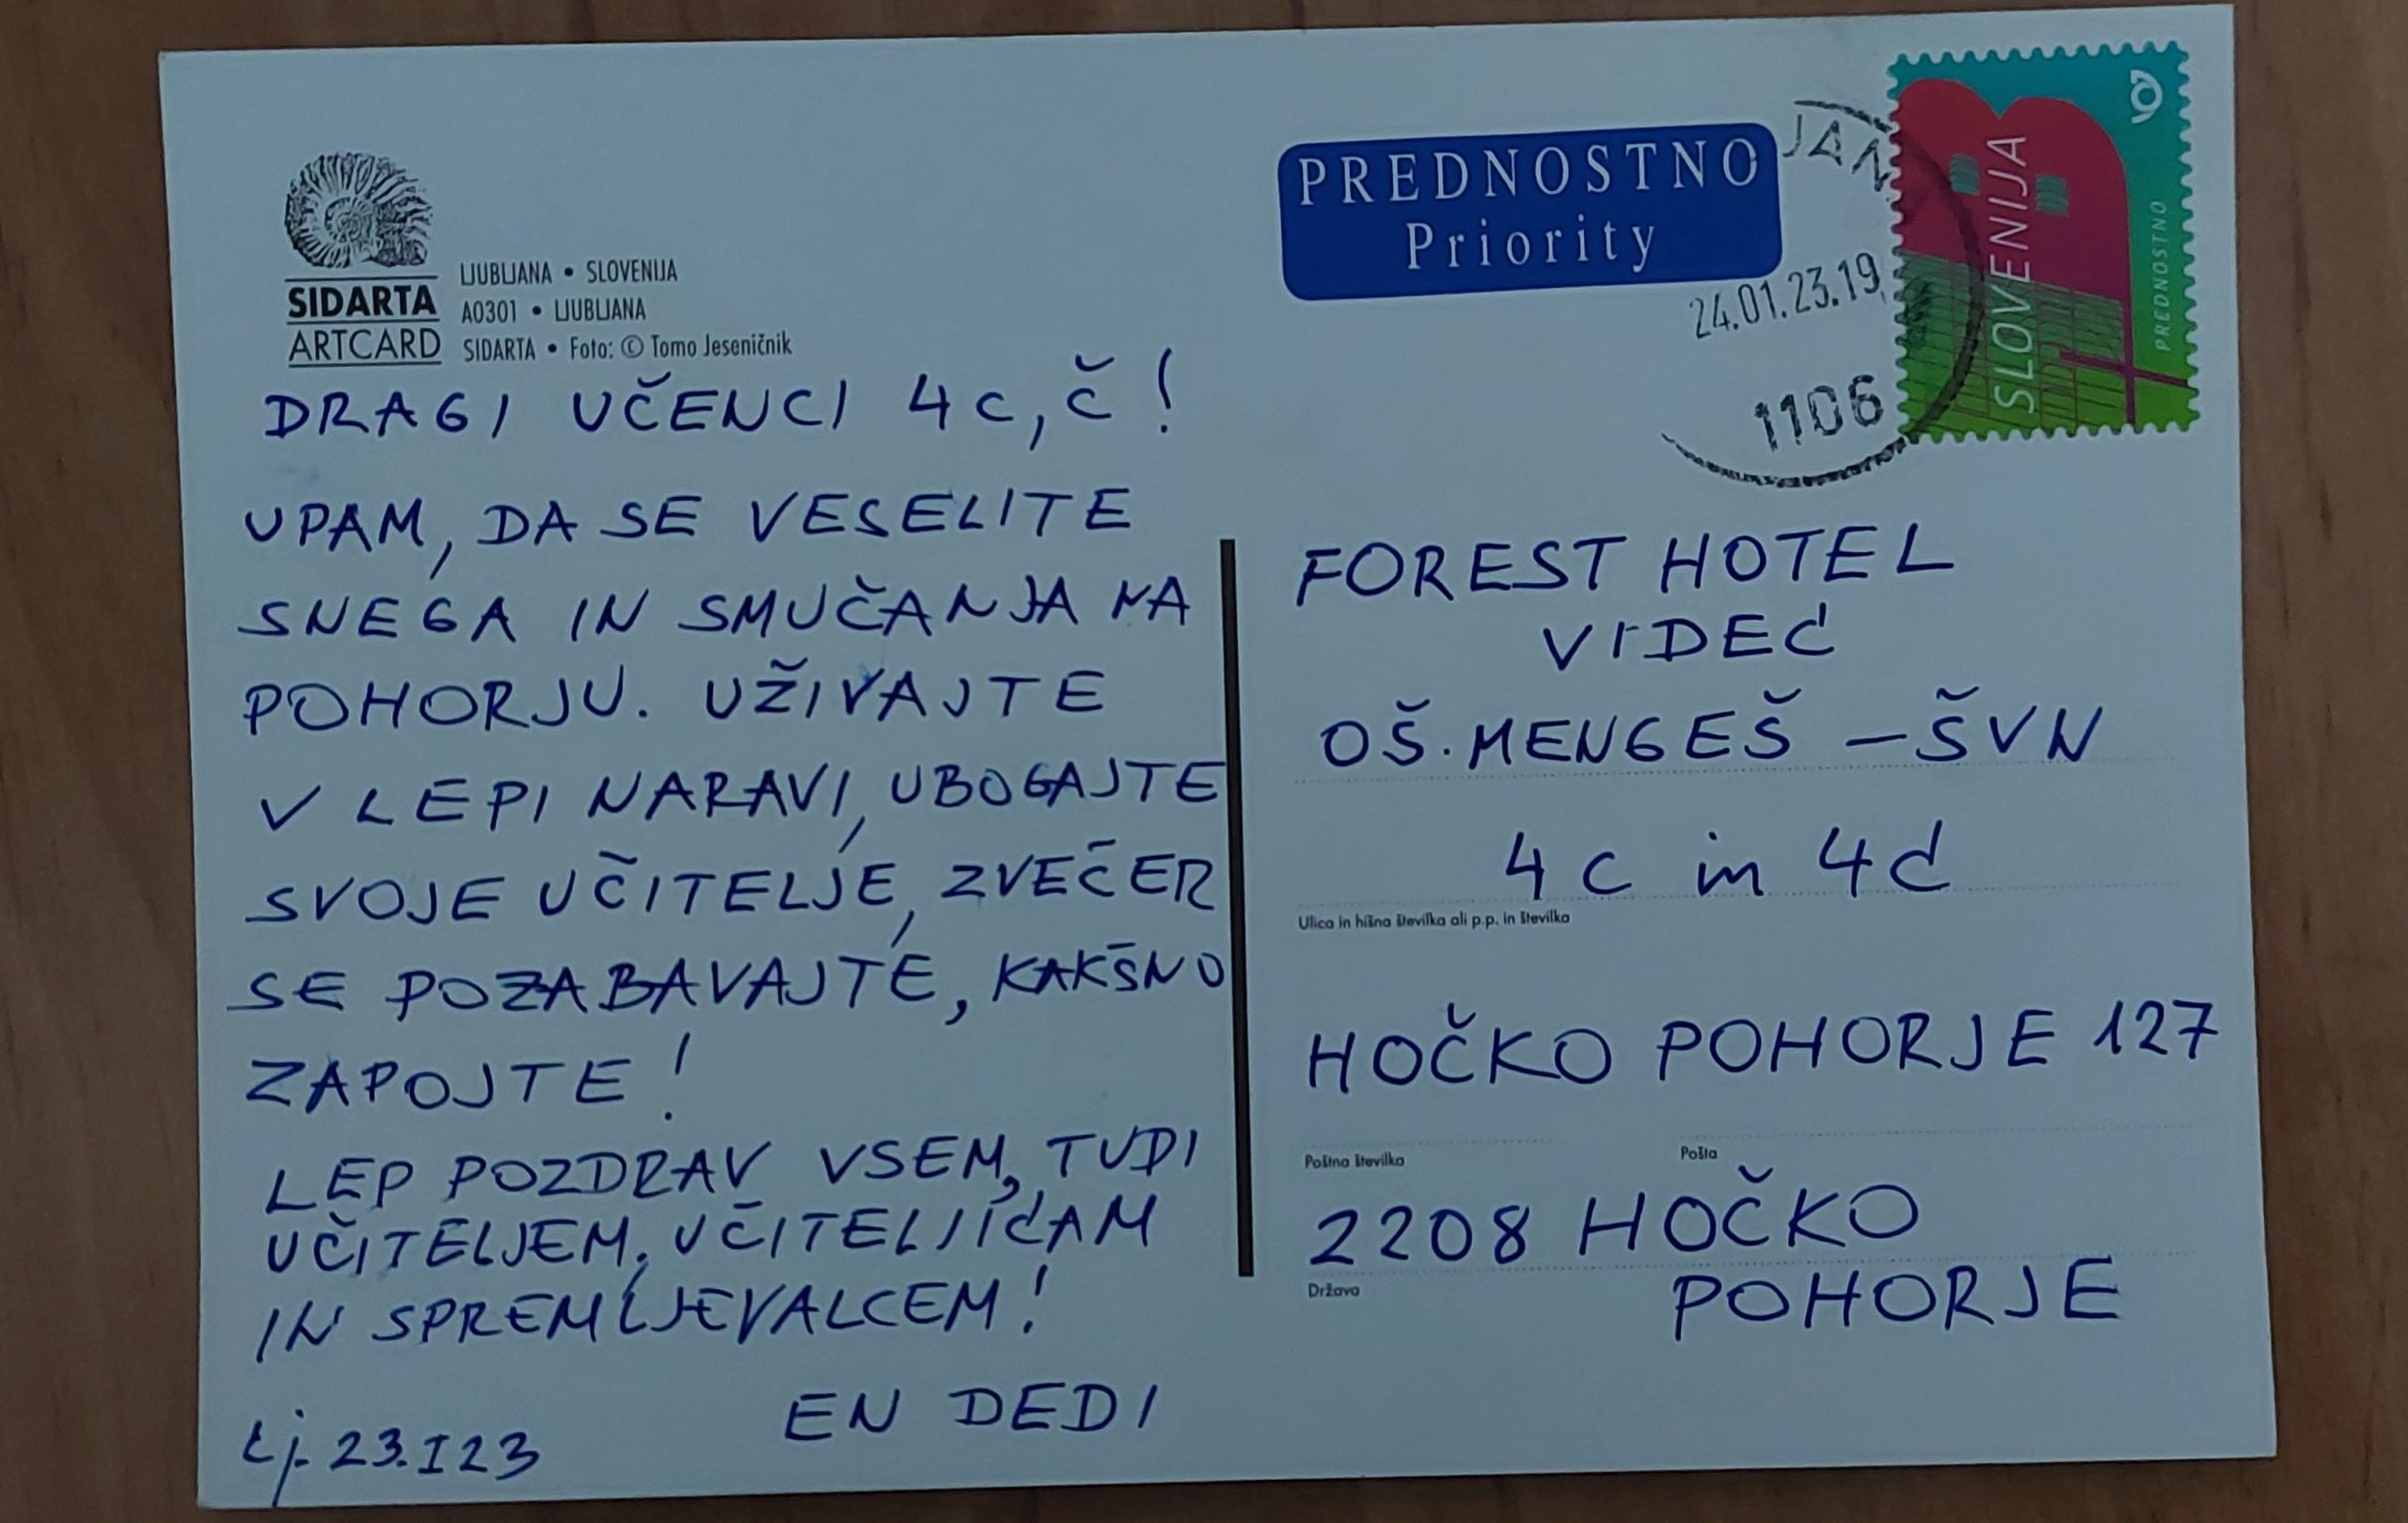 SIDARTA
ARTCARD
LJUBLJANA • SLOVENIJA
A0301 • LJUBLJANA
SIDARTA • Foto: © Tomo Jeseničnik
PREDNOSTNO
Priority
JAN
24.01.23.19
1106
SLOVENIJA
PREDNOSTNO
DRAGI UČENCI 4c, č!
UPAM, DA SE VESELITE
SNEGA IN SMUČANJA NA
POHORJU. UŽIVAJTE
V LEPI NARAVI, UBOGAJTE
SVOJE UČITELJE, ZVEČER
SE POZABAVAJTE, KAKŠNO
ZAPOJTE!
LEP POZDRAV VSEM, TUDI
UČITELJEM, UČITELJICAM
IN SPREMLJEVALCEM!
EN DEDI
Lj. 23.I23
FOREST HOTEL
VIDEC
OŠ. MENGEŠ – ŠVN
4c in 4d
Ulica in hišna številka ali p.p. in številka
HOČKO POHORJE 127
Poštna številka
Pošta
2208 HOČKO
Država
POHORJE